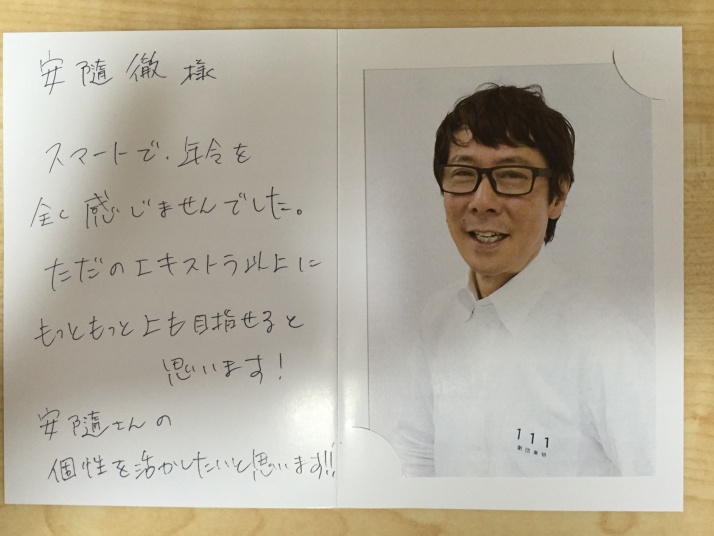 安隨徹様
スマートで、年令を
全く感じませんでした。
ただのエキストラ以上に
もっともっと上も目指せると
思います!
安隨さんの
個性を活かしたいと思います!!
111
劇団東俳